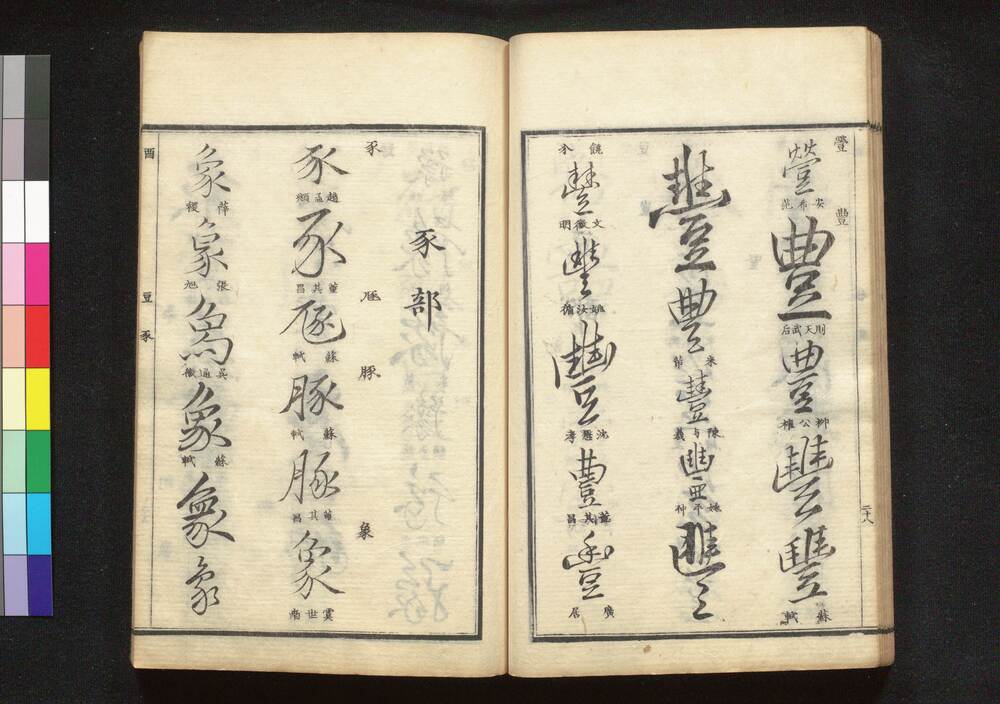 豐
豊
安希范
豊
則天武后
豊
柳公權
豐
豐
蘇軾
豐
豊
米芾
豐
陳与義
豐
姚平仲
豐
饒介
豐
文徵明
豐
姚汝循
豐
沈懋孝
豊
董其昌
豊
廣居
二十八
豕部
豕
豕
趙孟頫
豕
董其昌
豚
蘇軾
豚
豚
蘇軾
豚
董其昌
象
象
虞世南
象
薛稷
象
張旭
象
吴通微
象
蘇軾
象
象
豆豕